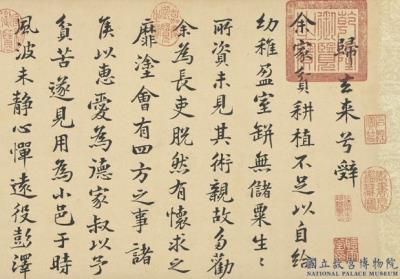 歸去来兮辭
余家貧耕植不足以自給
幼稚盈室缾無儲粟生〻
所資未見其術親故多勸
余為長吏脫然有懷求之
靡塗會有四方之事諸
侯以惠愛為德家叔以予
貧苦遂見用為小邑于時
風波未静心憚遠役彭澤
國立故宮博物院
NATIONAL PALACE MUSEUM